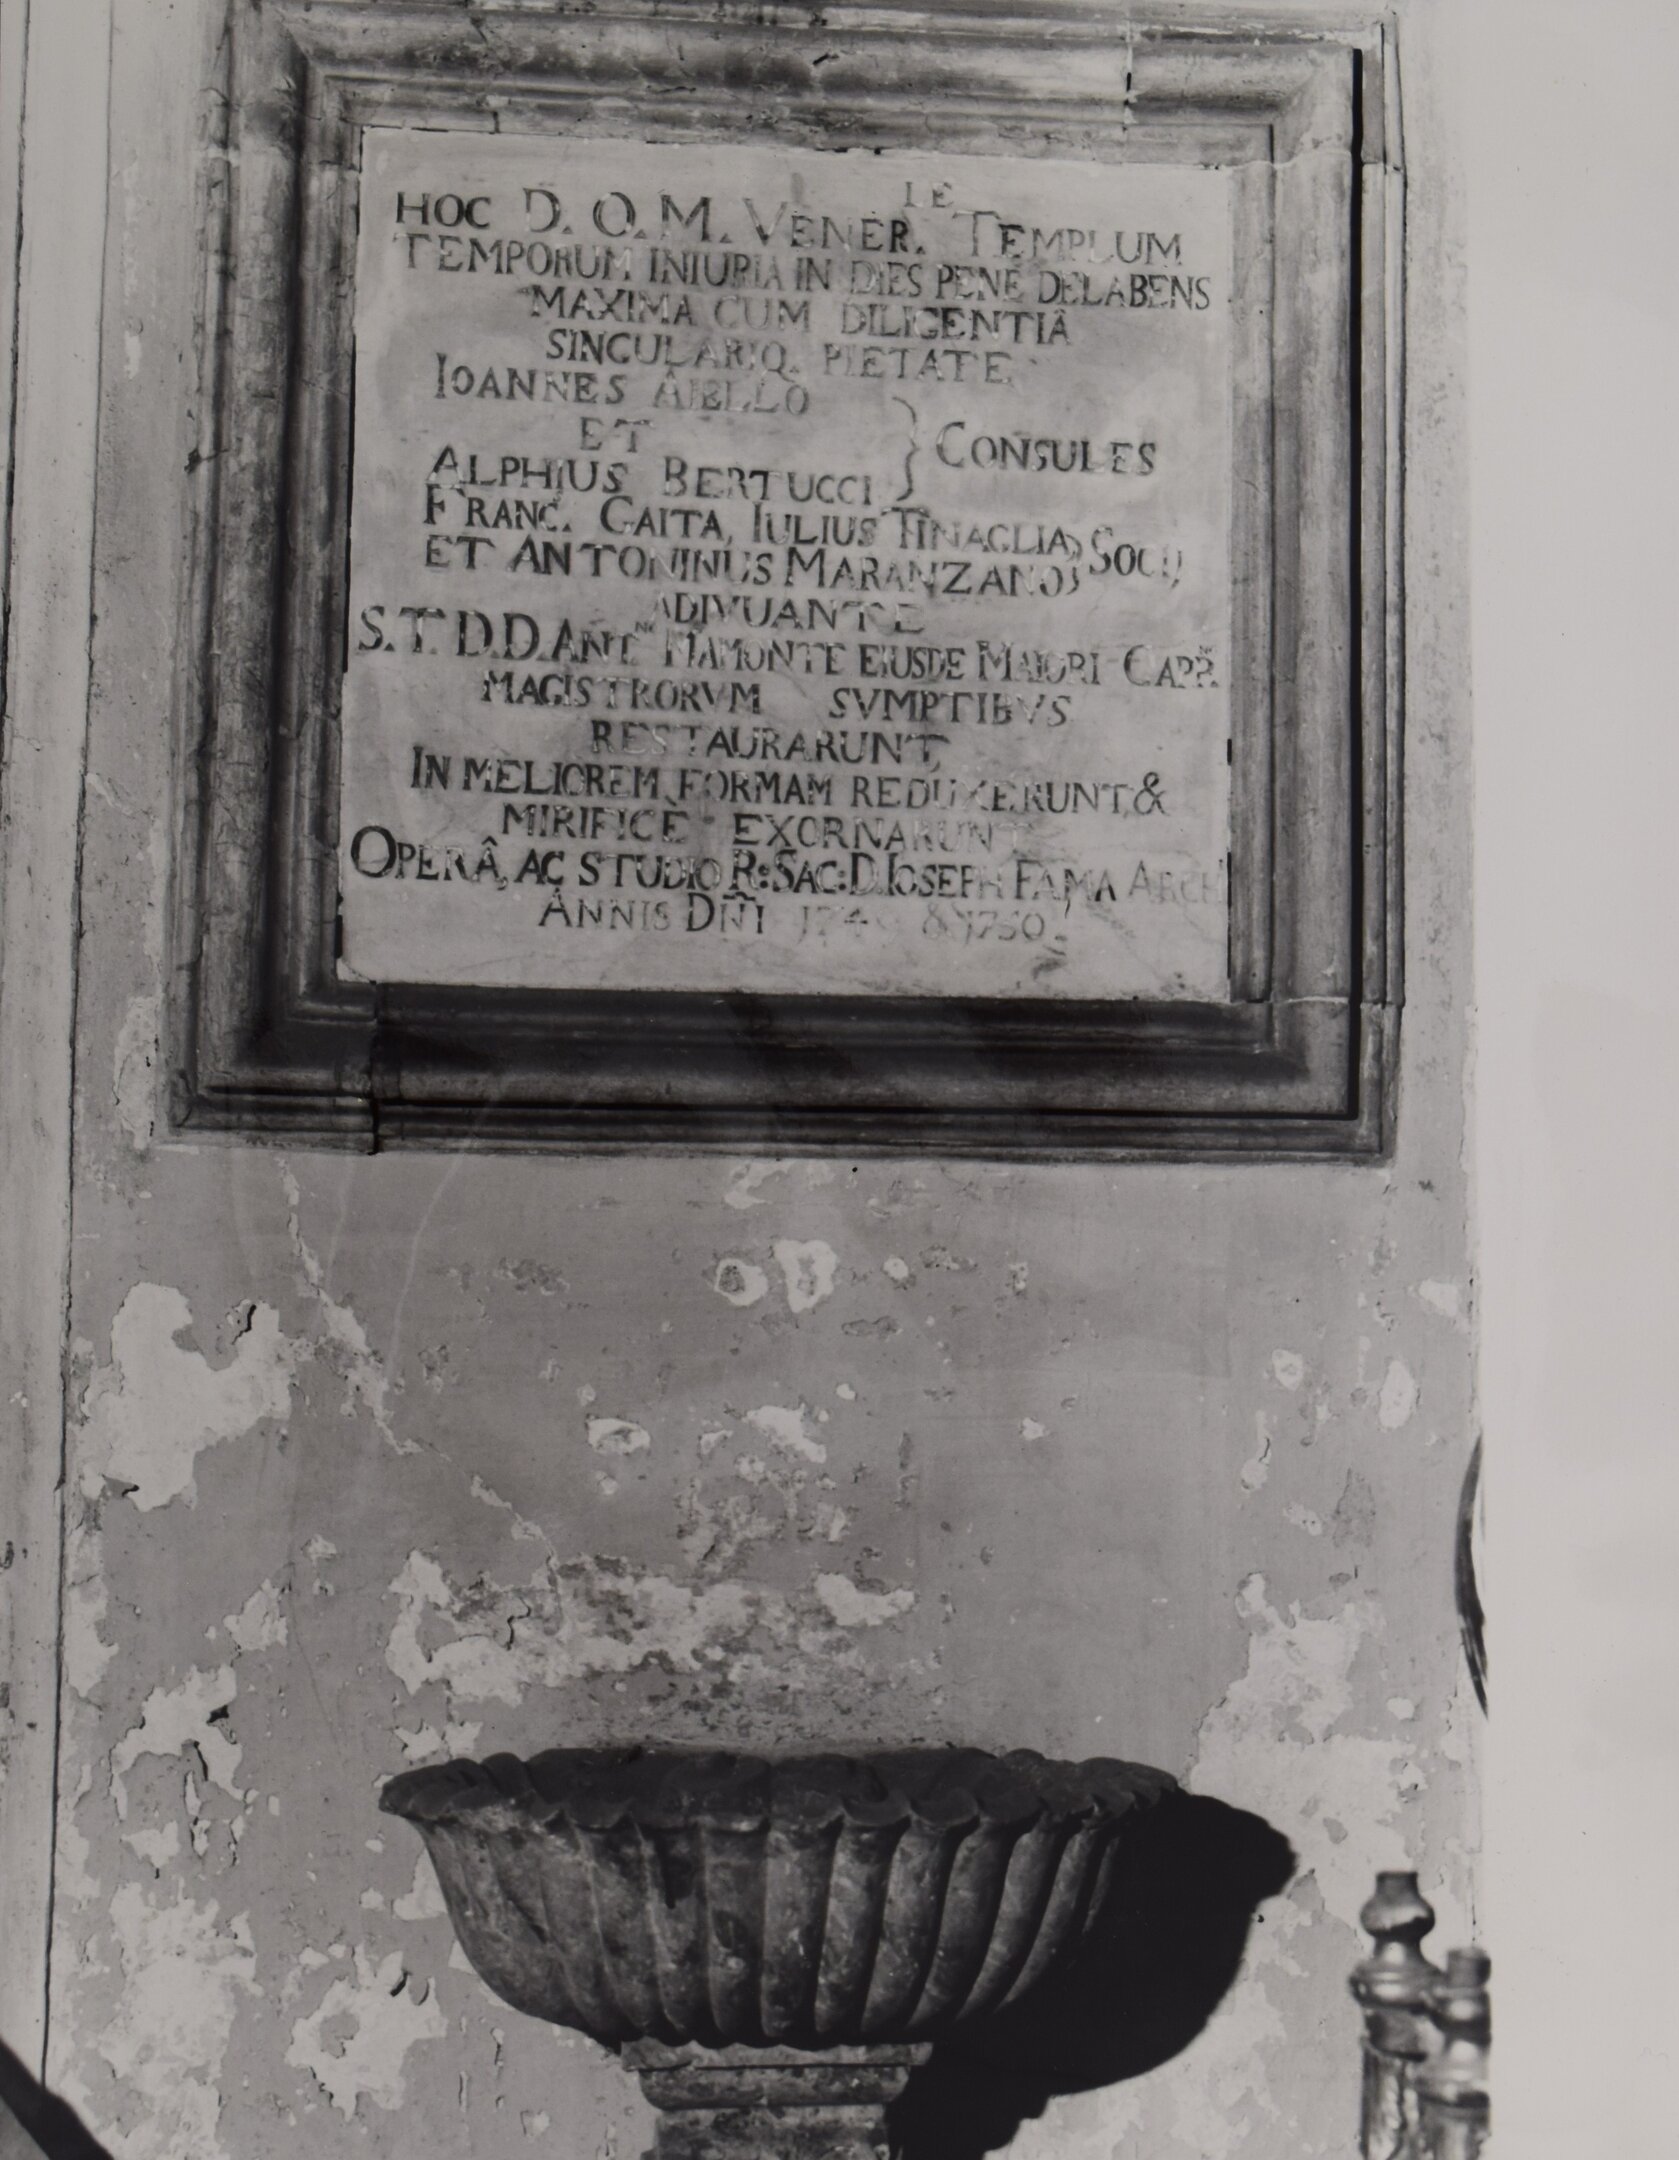 HOC D. O. M. VENER.LE TEMPLUM
TEMPORUM INIURIA IN DIES PENE DELABENS
MAXIMA CUM DILIGENTIÂ
SINGULARIQ. PIETATE
IOANNES AIELLO
ET
ALPHIUS BERTUCCI } CONSULES
FRANC. GAITA, IULIUS TINAGLIA
ET ANTONINUS MARANZANO } SOCIJ
ADIVUANTE
S. T. D. D. ANT.NI MAMONTE EIUSDE MAIORI CAPP.
MAGISTRORVM SVMPTIBVS
RESTAURARUNT,
IN MELIOREM FORMAM REDUXERUNT, &
MIRIFICÈ EXORNARUNT
OPERÂ, AC STUDIO R: SAC: D. IOSEPH FAMA ARCH
ANNIS DÑI 1749 & 1750